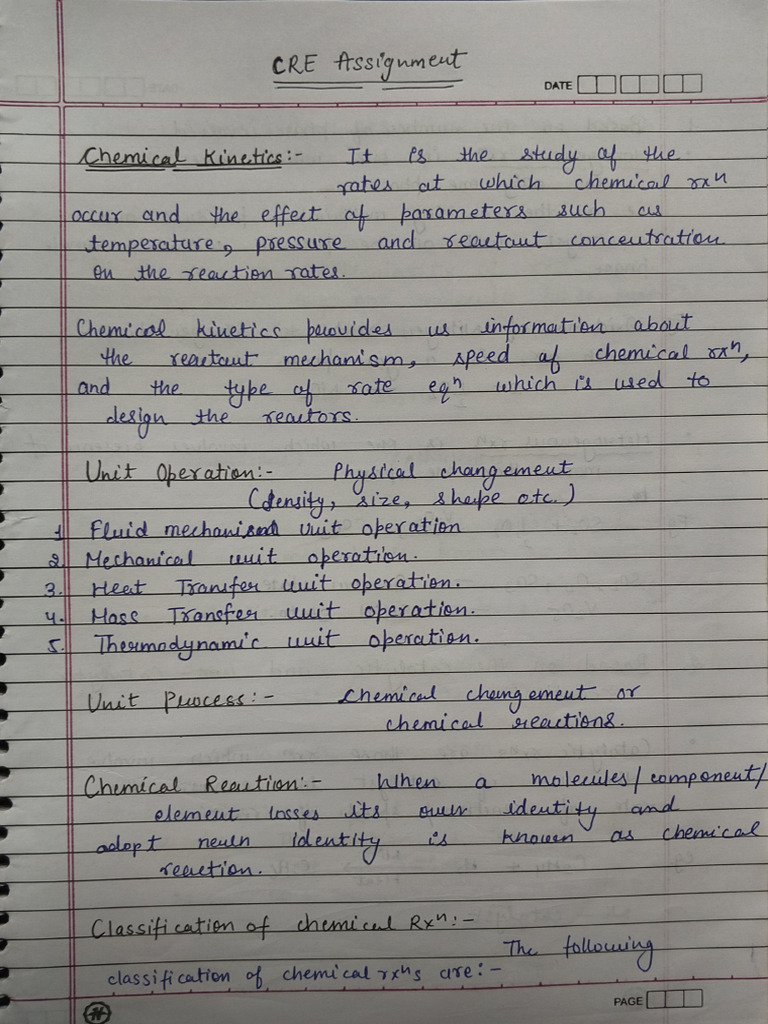 CRE Assignment
DATE
Chemical Kinetics:- It is the study of the
rates at which chemical rxⁿ
occur and the effect of parameters such as
temperature, pressure and reactant concentration
on the reaction rates.
Chemical kinetics provides us information about
the reactant mechanism, speed of chemical rxⁿ,
and the type of rate eqⁿ which is used to
design the reactors.
Unit Operation:- Physical changement
(density, size, shape etc.)
1. Fluid mechanism unit operation
2. Mechanical unit operation.
3. Heat Transfer unit operation.
4. Mass Transfer unit operation.
5. Thermodynamic unit operation.
Unit Process:- Chemical changement or
chemical reactions.
Chemical Reaction:- When a molecules/component/
element losses its own identity and
adopt identity is known as chemical
reaction.
Classification of chemical Rxⁿ:-
The following
classification of chemical rxⁿs are:-
PAGE